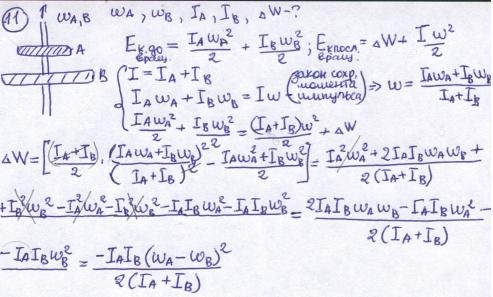 11 ω_A,B ω_A, ω_B, I_A, I_B, ΔW-?
A
B
E_к.до вращ. = I_Aω_A²/2 + I_Bω_B²/2; E_к посл. вращ. = ΔW + Iω²/2
{ I = I_A + I_B
I_Aω_A + I_Bω_B = Iω (закон сохр. момента импульса) ⇒ ω = (I_Aω_A + I_Bω_B)/(I_A + I_B)
I_Aω_A²/2 + I_Bω_B²/2 = (I_A + I_B)ω²/2 + ΔW
ΔW = [(I_A + I_B)/2 · (I_Aω_A + I_Bω_B)²/(I_A + I_B)² - (I_Aω_A² + I_Bω_B²)/2] = (I_A²ω_A² + 2I_AI_Bω_Aω_B +
+ I_B²ω_B² - I_A²ω_A² - I_B²ω_B² - I_AI_Bω_A² - I_AI_Bω_B²)/(2(I_A + I_B)) = (2I_AI_Bω_Aω_B - I_AI_Bω_A² -
- I_AI_Bω_B²)/(2(I_A + I_B)) = -I_AI_B(ω_A - ω_B)²/(2(I_A + I_B))